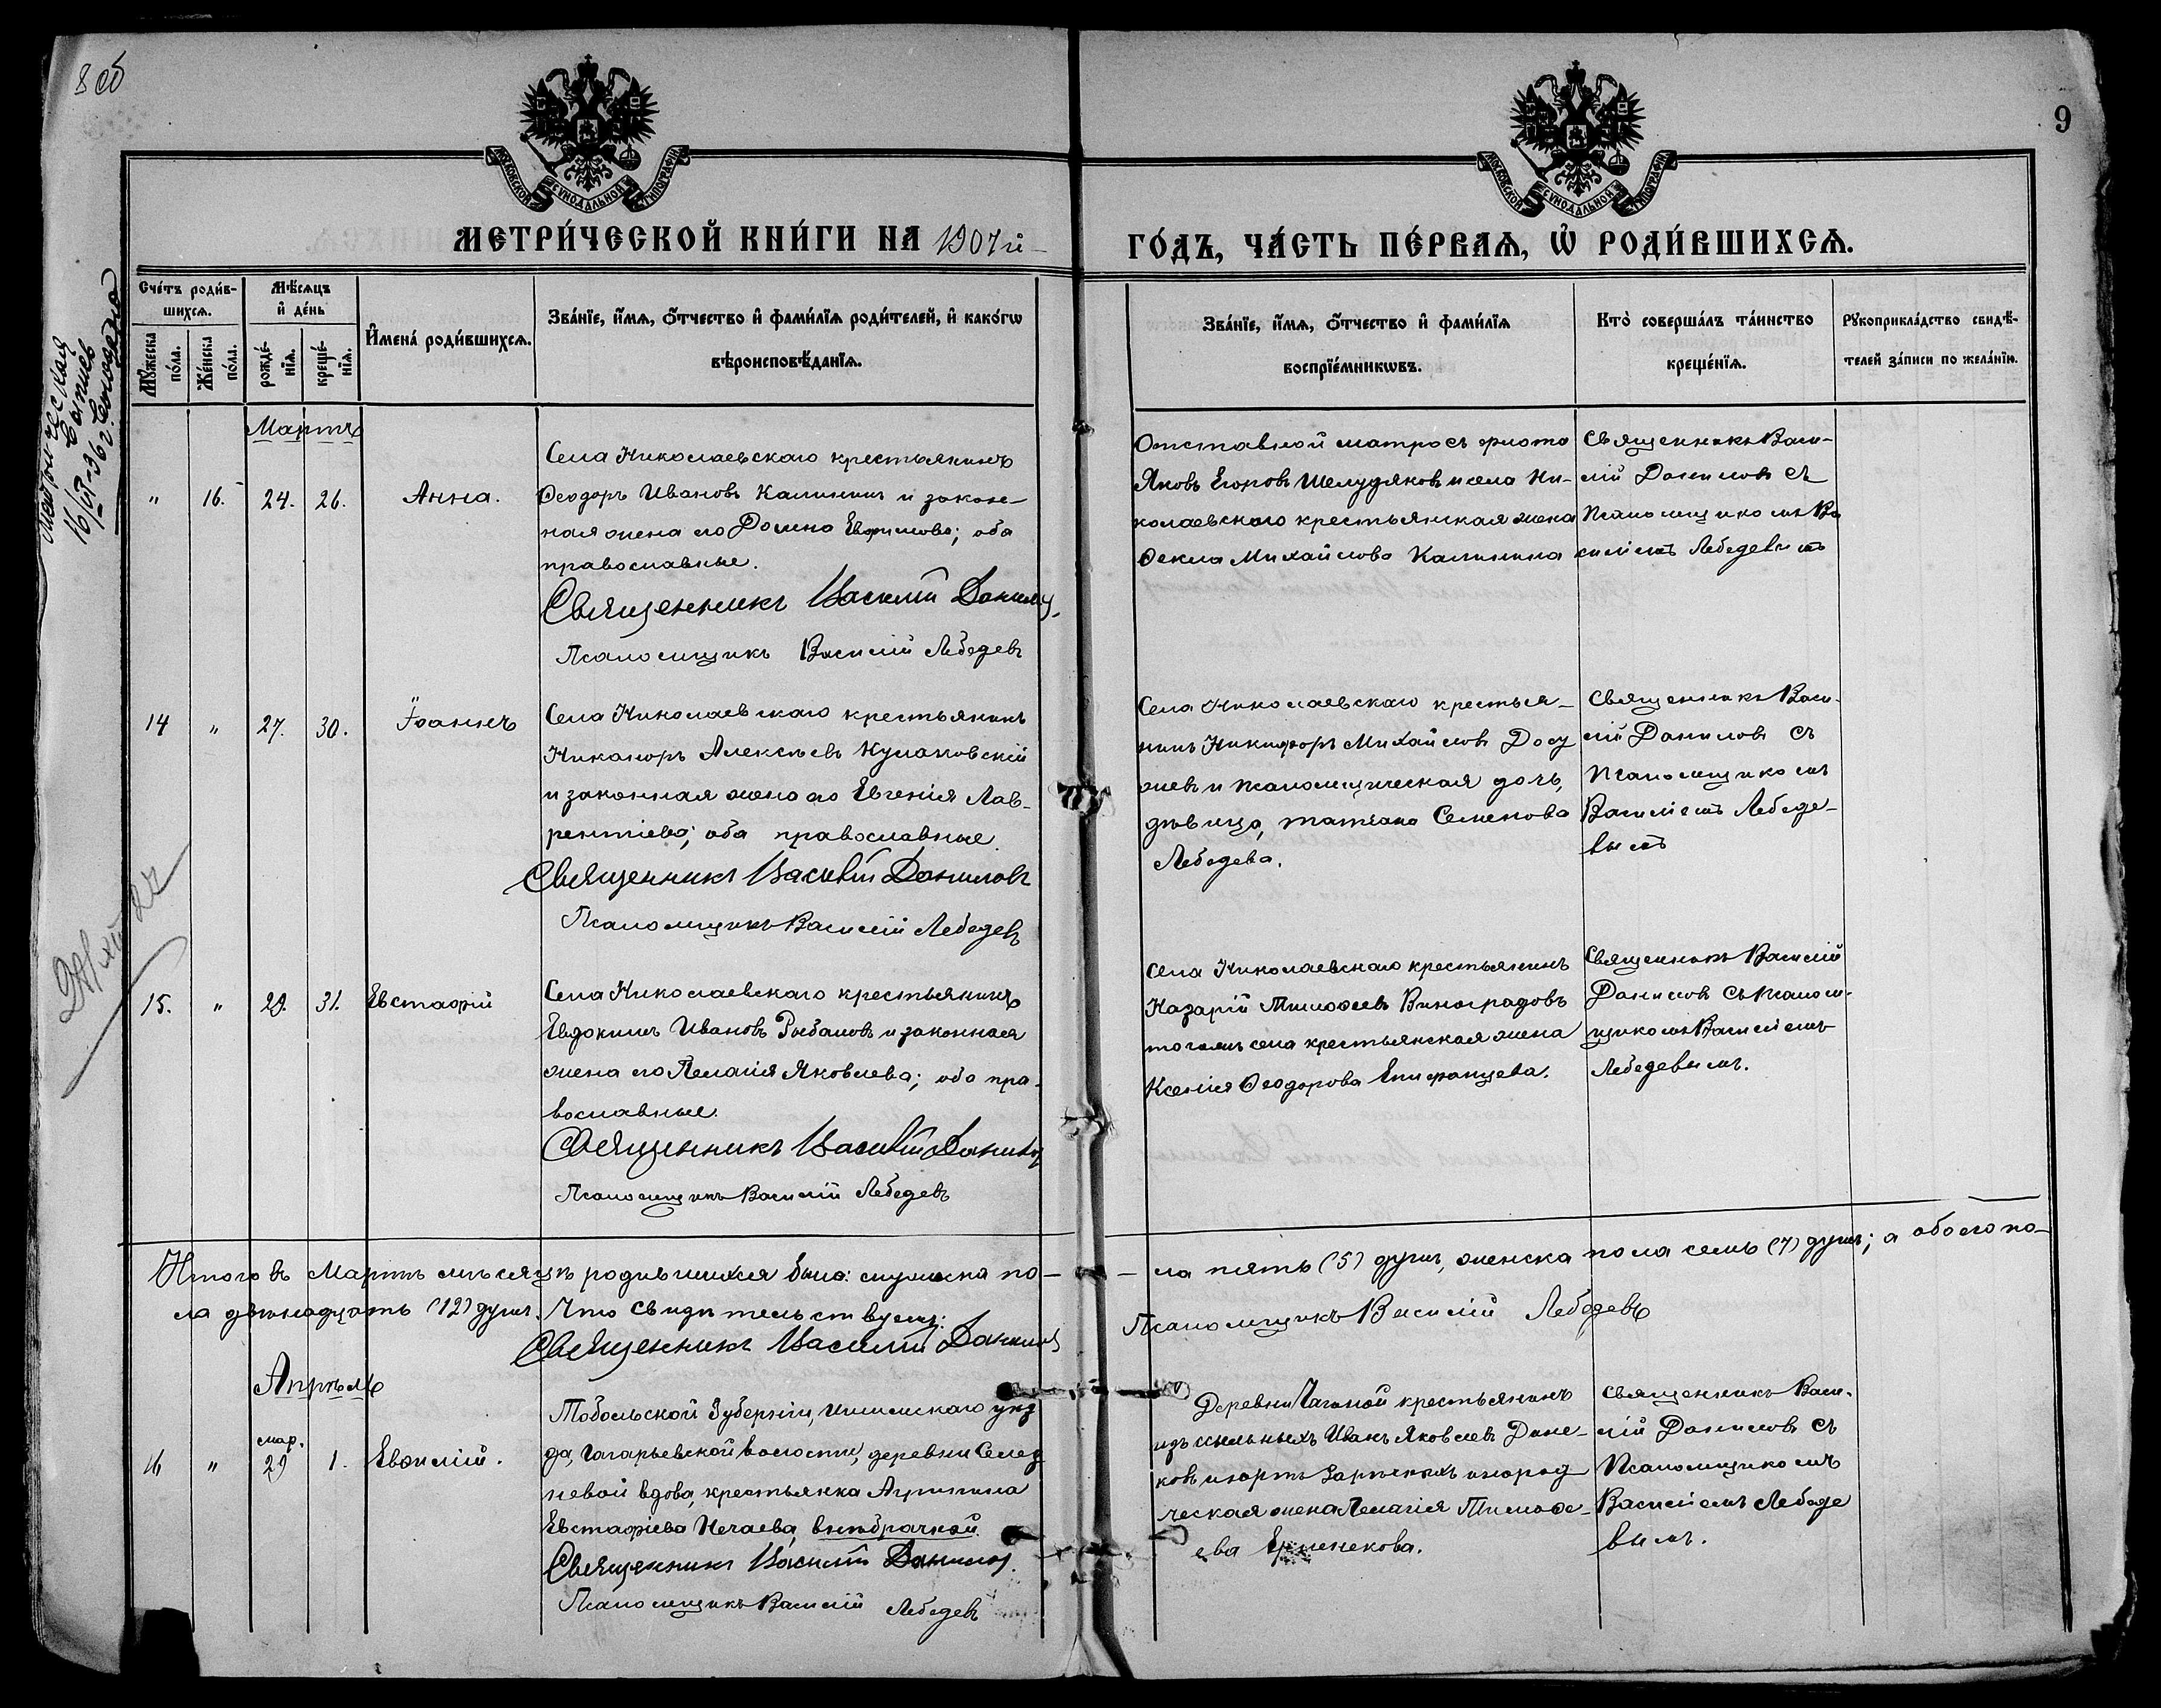 8 об
9
МОСКОВСКОЙ СУНОДАЛЬНОЙ ТИПОГРАФІИ
МОСКОВСКОЙ СУНОДАЛЬНОЙ ТИПОГРАФІИ
МЕТРИ́ЧЕСКОЙ КНИ́ГИ НА 1907й
ГО́ДЪ, ЧА́СТЬ ПЕ́РВАѦ, Ѡ РОДИ́ВШИХСѦ.
Сче́тъ роди́в-
шихсѧ.
Мꙋ́жеска
по́ла.
Же́нска
по́ла.
Мѣ́сѧцъ
и де́нь
рожде́-
нїѧ.
креще́-
нїѧ.
Имена̀ роди́вшихсѧ.
Зва́нїе, и́мѧ, ѻ́тчество и фами́лїѧ роди́телей, и како́гѡ
вѣроисповѣ́данїѧ.
Зва́нїе, и́мѧ, ѻ́тчество и фами́лїѧ
воспрїе́мникѡвъ.
Кто̀ соверша́лъ та́инство
креще́нїѧ.
Рꙋкоприкла́дство свидѣ́-
телей за́писи по жела́нїю.
Мартъ
" 16. 24. 26. Анна.
Села Николаевскаго крестьянинъ
Ѳеодоръ Ивановъ Калининъ и закон-
ная жена его Домна Евфимова; оба
православные.
Священникъ Василій Даниловъ
Псаломщикъ Василій Лебедевъ
Отставной матросъ флота
Яковъ Егоровъ Шелудяковъ и села Ни-
колаевского крестьянская жена
Ѳекла Михайлова Калинина
Священникъ Васи-
лій Даниловъ съ
Псаломщикомъ Ва
силіемъ Лебедевымъ
14 " 27. 30. Іоаннъ
Села Николаевскаго крестьянинъ
Никаноръ Алексѣевъ Кулаковскій
и законная жена его Евгенія Лав-
рентіева; оба православные.
Священникъ Василій Даниловъ
Псаломщикъ Василій Лебедевъ
Села Николаевскаго крестья-
нинъ Никифоръ Михайловъ Досу
жевъ и псаломщическая дочь,
дѣвица, Татіана Семенова
Лебедева.
Священникъ Васи-
лій Даниловъ съ
Псаломщикомъ
Василіемъ Лебеде-
вымъ
15. " 29. 31. Евстафій
Села Николаевскаго крестьянинъ
Евдокимъ Ивановъ Рыбаловъ и законная
жена его Пелагія Яковлева; оба пра-
вославные.
Священникъ Василій Даниловъ
Псаломщикъ Василій Лебедевъ
Села Николаевскаго крестьянинъ
Назарій Тимоѳеевъ Виноградовъ
тогожъ села крестьянская жена
Ксенія Ѳеодорова Епифанцева.
Священникъ Василій
Даниловъ съ Псалом-
щикомъ Василіемъ
Лебедевымъ.
Итого въ Мартѣ мѣсяцѣ родившихся было: мужска по-
- ла пять (5) душъ, женска пола семь (7) душъ; а обоего по-
ла двѣнадцать (12) душъ. Что свидѣтельствуемъ:
Священникъ Василій Даниловъ
Псаломщикъ Василій Лебедевъ
Апрѣль
16 " мар. 29 1. Евѳимій.
Тобольской Губерніи, Ишимскаго уѣз
да, Гагарьевской волости, деревни Селез
невой вдова, крестьянка Агрипина
Евстафіева Нечаева, внѣбрачной.
Священникъ Василій Даниловъ.
Псаломщикъ Василій Лебедевъ
Деревни крестьянинъ
изъ ссыльныхъ Иванъ Яковлевъ
ческая жена Пелагія Тимоѳе-
ева
Священникъ Васи-
лій Даниловъ съ
Псаломщикомъ
Василіемъ Лебеде
вымъ.